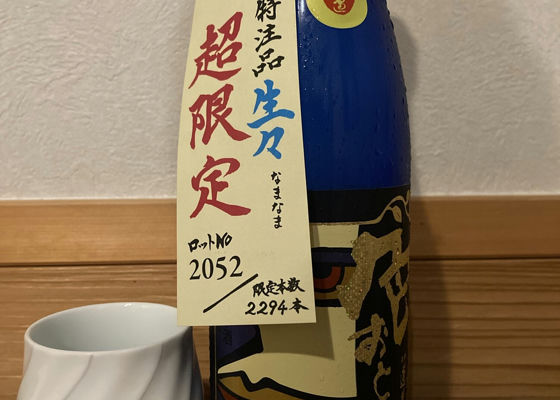 特注品
生々
なまなま
超限定
ロットNo
2052
限定本数
2294本